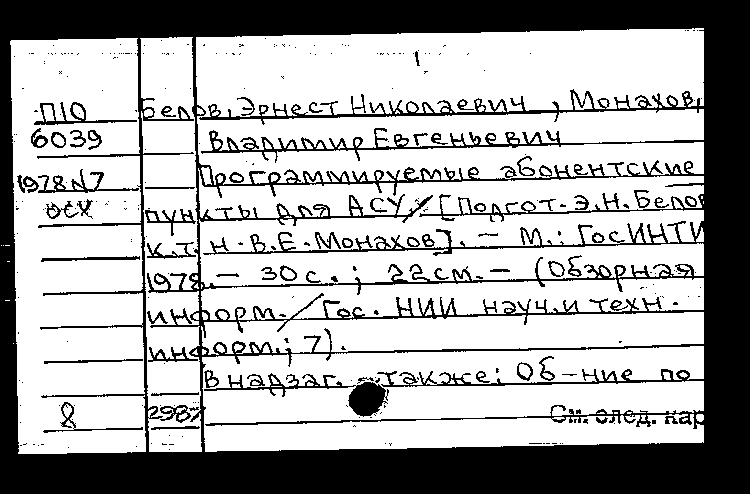 П10 Белов, Эрнест Николаевич, Монахов,
6039 Владимир Евгеньевич
1978 N7 Программируемые абонентские
осх пункты для АСУ / [Подгот. Э.Н. Белов
к.т.н. В.Е. Монахов]. — М.: ГосИНТИ
1978. — 30 с.; 22 см. — (Обзорная
информ. / Гос. НИИ науч. и техн.
информ.; 7).
В надзаг. также: Об-ние по
8 2987 См. след. кар